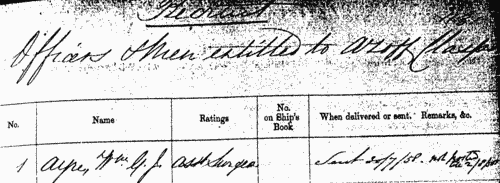 Officers & Men entitled to Azoff Clasps
No.
Name
Ratings
No. on Ship's Book
When delivered or sent.
Remarks, &c.
1
Wm G. J.
Asst Surgeon
Sent 20/7/58.